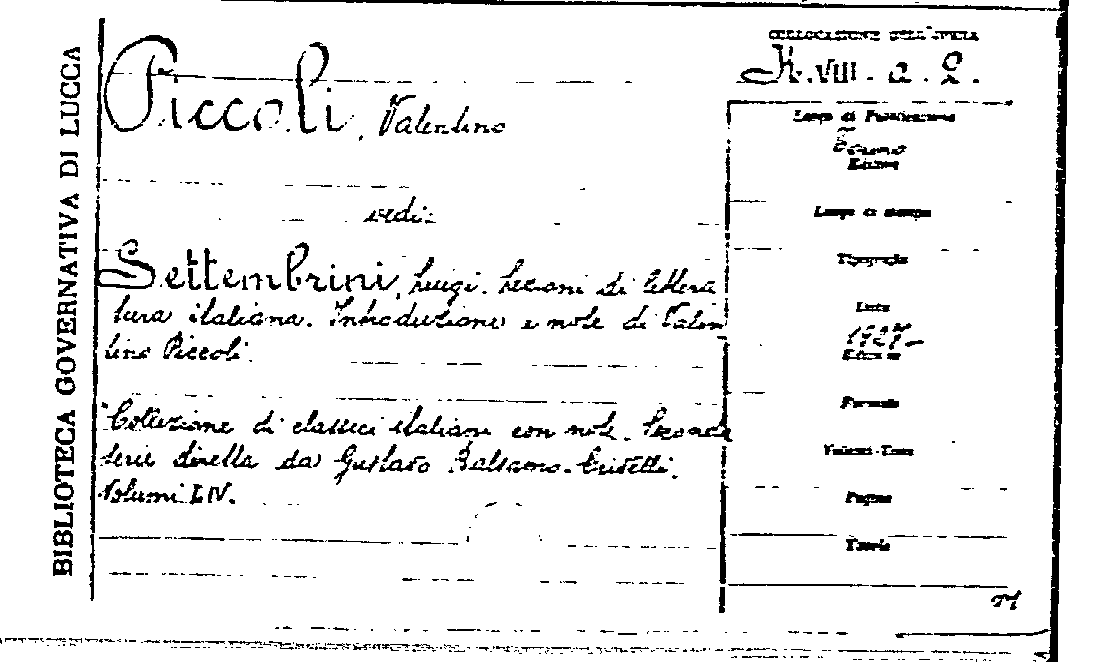 BIBLIOTECA GOVERNATIVA DI LUCCA
COLLOCAZIONE DELL'OPERA
VIII. a. 2.
Piccoli, Valentino
vedi:
Settembrini, Luigi. Lezioni di lettera
tura italiana. Introduzione e note di Valen
tino Piccoli.
"Collezione di classici italiani con note. Seconda
serie diretta da Gustavo Balsamo-Crivelli.
Volumi I-IV.
Luogo di Pubblicazione
Torino
Editore
Luogo di stampa
Tipografia
Data
1927
Edizione
Formato
Volumi-Tomi
Pagine
Tavole